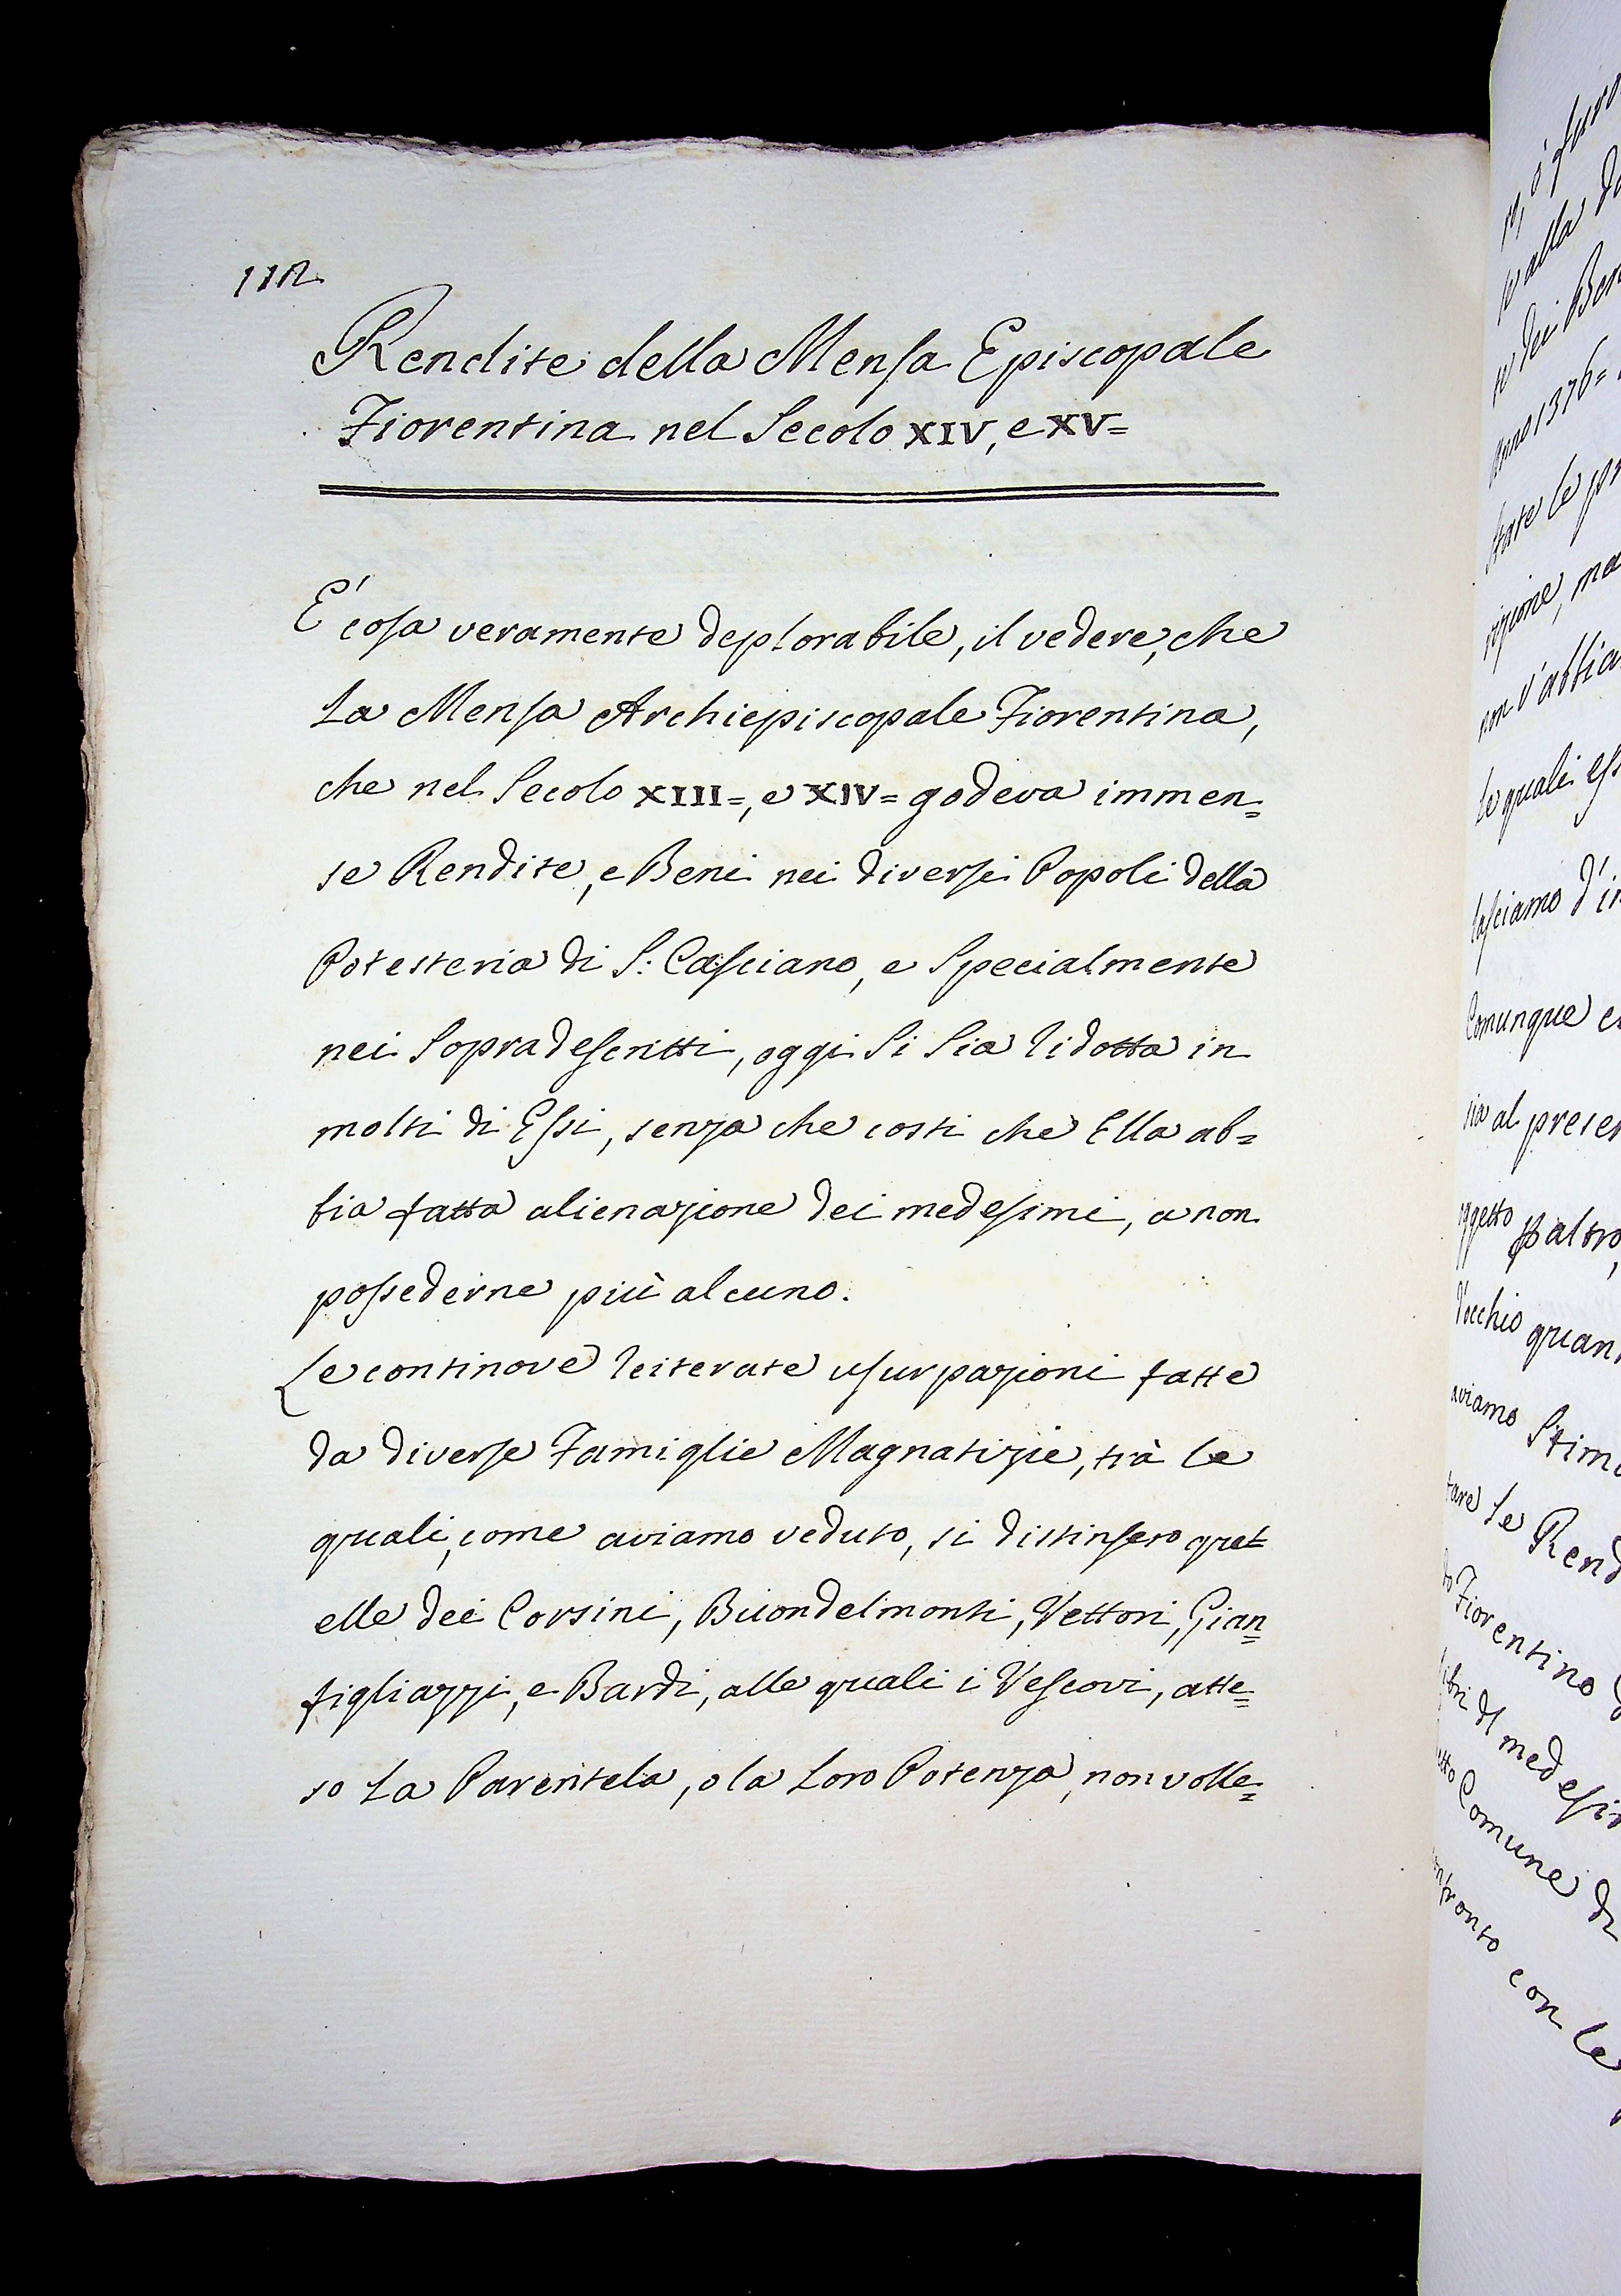 112
Rendite della Mensa Episcopale
Fiorentina nel Secolo XIV, e XV=
E' cosa veramente deplorabile, il vedere, che
La Mensa Archiepiscopale Fiorentina,
che nel Secolo XIII=, e XIV= godeva immen=
se Rendite, e Beni nei diversi Popoli della
Potesteria di S: Casciano, e Specialmente
nei Sopradescritti, oggi Si Sia ridotta in
molti di Essi, senza che costi che Ella ab=
bia fatta alienazione dei medesimi, a non
possederne più alcuno.
Le continove reiterate usurpazioni fatte
da diverse Famiglie Magnatizie, trà le
quali, come aviamo veduto, si distinsero qu
elle dei Corsini, Buondelmonti, Vettori, Gian=
figliazzi, e Bardi, alle quali i Vescovi, atte=
so La Parentela, o la Loro Potenza, non volle=
alla
dei Ben
anno 1376=
Le quali
lasciamo d'in
Comunque
sia al presen
oggetto
d'occhio quan
aviamo Stim
tare Le Rend
Fiorentino
libri di medesim
Comune di
con le